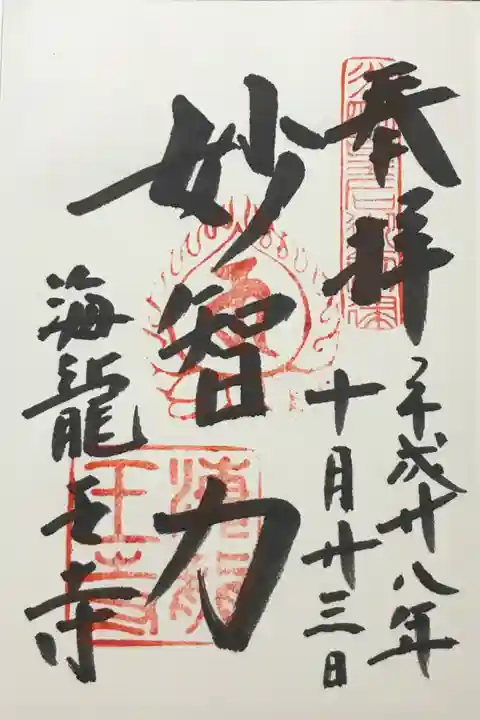 奉拝
平成廿八年
十月廿三日
妙智力
海龍王寺
海龍
王寺